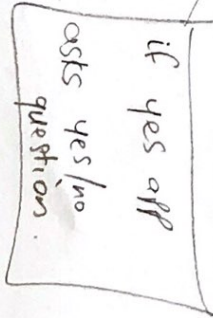 if yes off
asts yes/no
question.